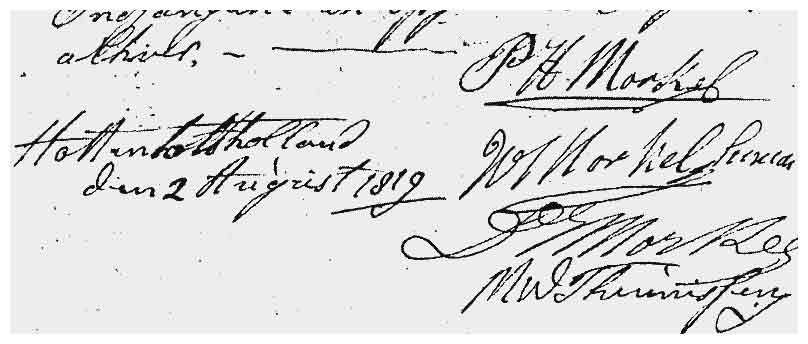 alhier, –
P H Morkel
Hottentotsholland
den 2 August 1819
W Morkel
Morkel
M W Theunissen